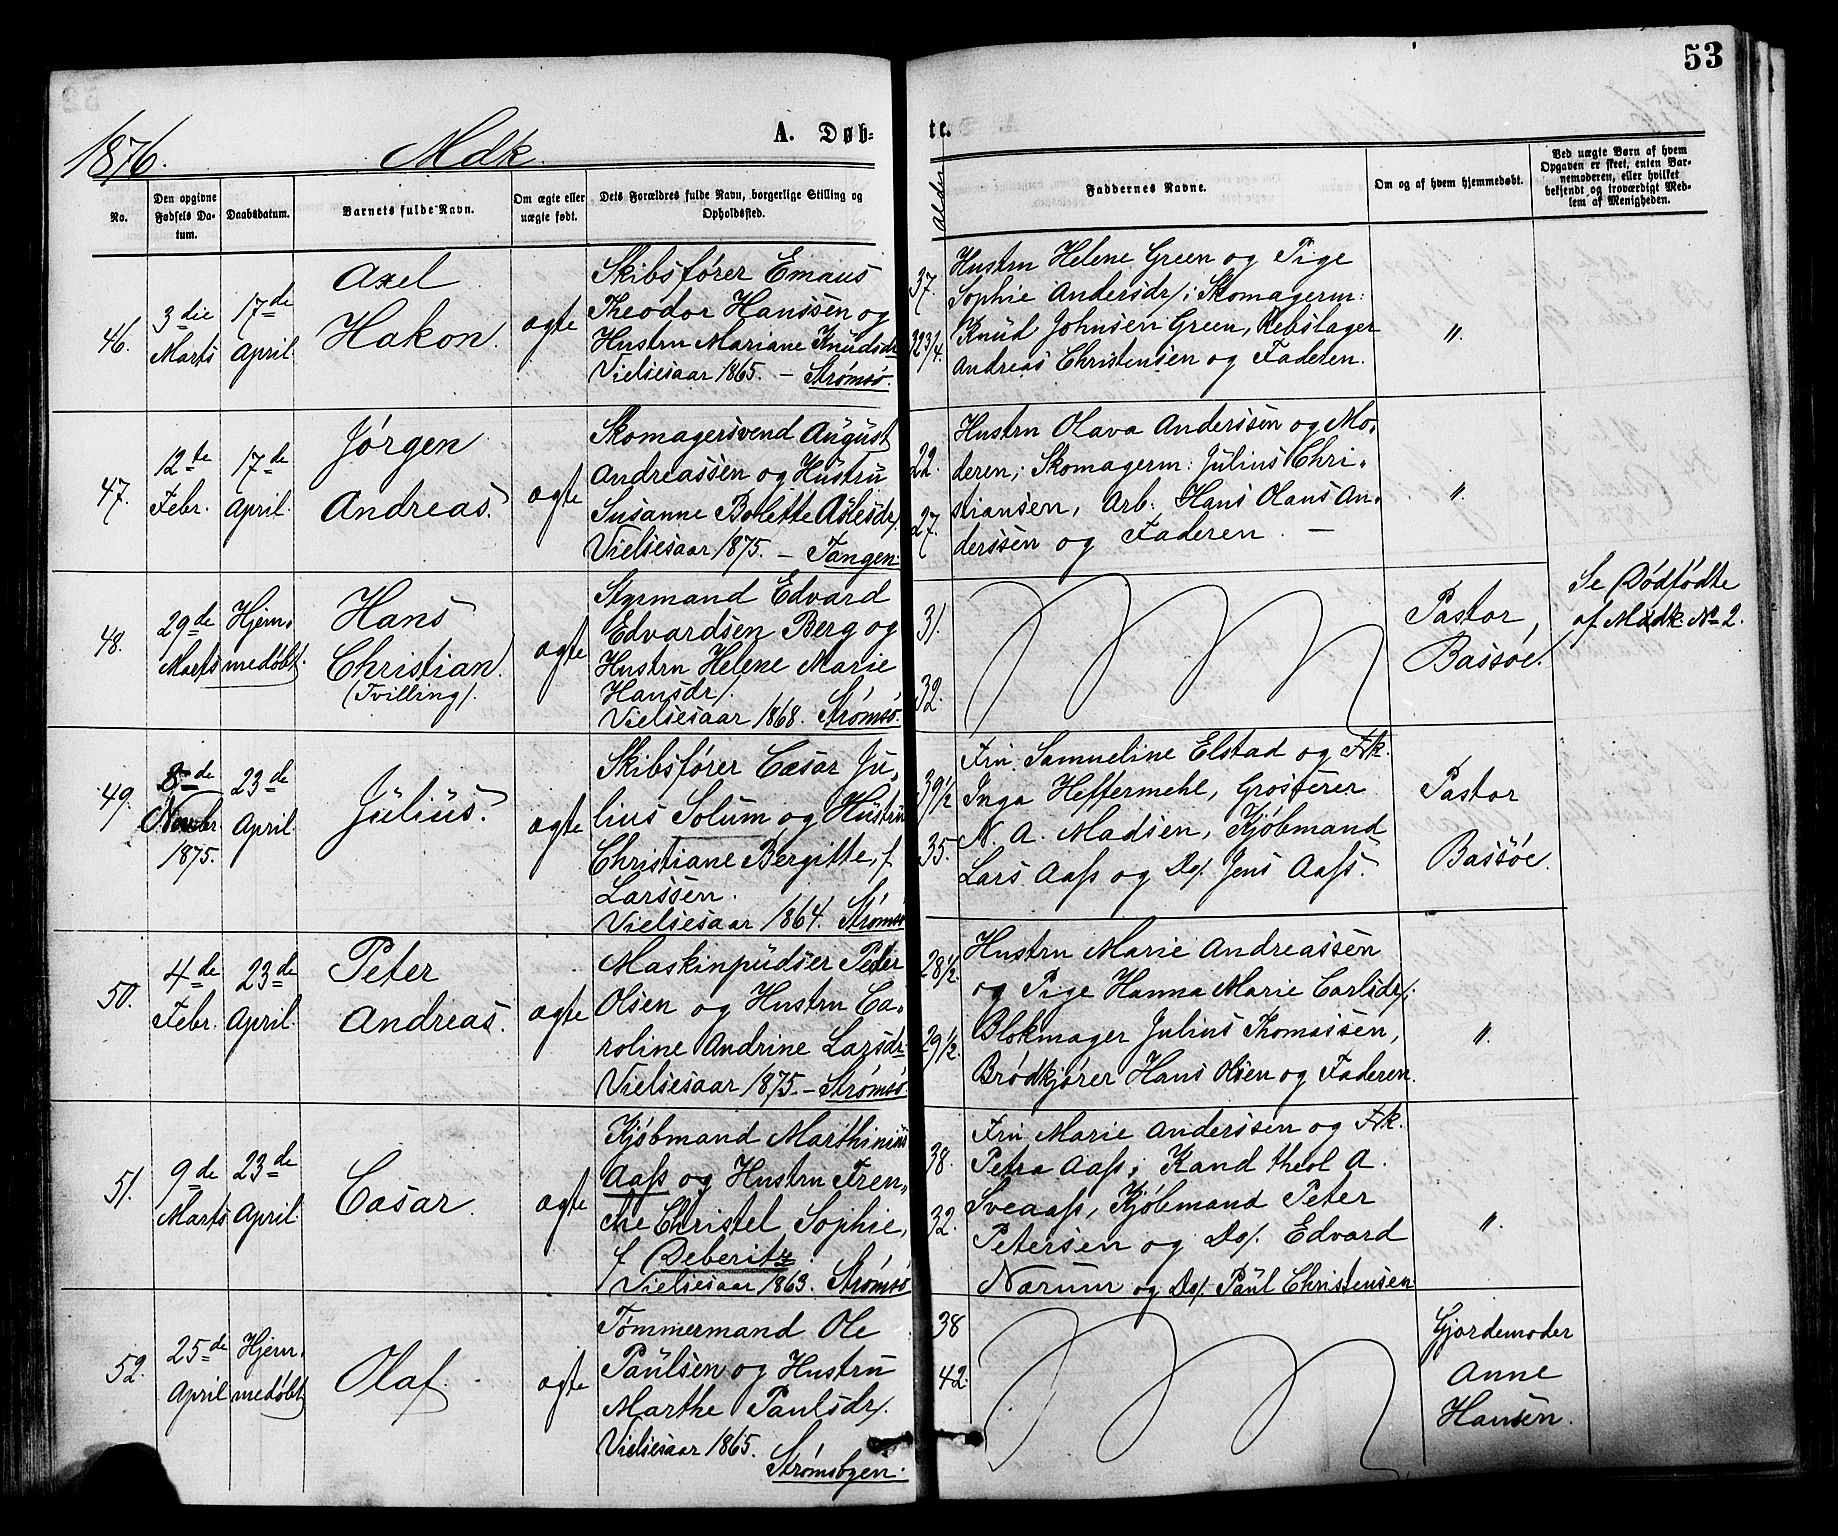 53
1876.
Mdk.
A. Døb-
te.
No.
Den opgivne
Fødsels Da-
tum.
Daabsdatum.
Barnets fulde Navn.
Om ægte eller
uægte født.
Dets Forældres fulde Navn, borgerlige Stilling og
Opholdssted.
Alder
Faddernes Navne.
Om og af hvem hjemmedøbt.
Ved uægte Børn af hvem
Opgaven er skeet, enten Bar-
nemoderen, eller hvilket
bekjendt og troværdigt Med-
lem af Menigheden.
46.
3die
Marts
17de
April.
Axel
Hakon.
ægte
Skibsfører Emaus
Theodor Hanssen og
Hustru Mariane Knudsdr
Vielsesaar 1865. – Strømsø.
37.
32 3/4.
Hustru Helene Green og Pige
Sophie Andersdr/; Skomagerm:
Knud Johnsen Green, Rebslager
Andreas Christensen og Faderen.
"
47.
12te
Febr.
17de
April.
Jørgen
Andreas.
ægte
Skomagersvend August
Andreassen og Hustru
Susanne Bolette Aslesdr/
Vielsesaar 1875. – Tangen.
22.
27.
Hustru Olava Anderssen og Mo-
deren; Skomagerm: Julius Chri-
stiansen, Arb. Hans Olaus An-
derssen og Faderen. –
"
48.
29de
Marts
Hjem-
medøbt.
Hans
Christian.
(Tvilling).
ægte
Styrmand Edvard
Edvardsen Berg og
Hustru Helene Marie
Hansdr/.
Vielsesaar 1868. Strømsø.
31.
32.
Pastor
Bassøe.
Se Dødfødte
af Mdk. No 2.
49.
8de
Novbr
1875.
23de
April.
Julius.
ægte
Skibsfører Cæsar Ju-
lius Solum og Hustru
Christiane Bergitte, f.
Larssen.
Vielsesaar 1864. Strømsø
39 1/2
35.
Fru Samueline Elstad og Frk.
Inga Heffermehl, Grosserer
N. A. Madsen, Kjøbmand
Lars Aass og Do/. Jens Aass.
Pastor
Bassøe.
50.
4de
Febr.
23de
April.
Peter
Andreas.
ægte
Maskinpudser Peder
Olsen og Hustru Ca-
roline Andrine Larsdr
Vielsesaar 1875. – Strømsø
28 1/2.
29 1/2.
Hustru Marie Andreassen
og Pige Hanna Marie Carlsdr/;
Blokmager Julius Thomassen,
Brødkjører Hans Olsen og Faderen.
"
51.
9de
Marts
23de
April.
Cæsar.
ægte
Kjøbmand Marthinius
Aass og Hustru Fren-
che Christel Sophie,
f Deberitz
Vielsesaar 1863. Strømsø
38.
32.
Fru Marie Anderssen og Frk.
Petra Aass; Kand theol A.
Sveaass, Kjøbmand Peter
Petersen og Do/. Edvard
Nærum og Do/. Paul Christensen
"
52.
25de
April
Hjem-
medøbt
Olaf.
ægte
Tømmermand Ole
Paulsen og Hustru
Marthe Paulsdr/.
Vielsesaar 1865.
Strømsbyen.
38
42.
Gjordemoder
Anne
Hansen.